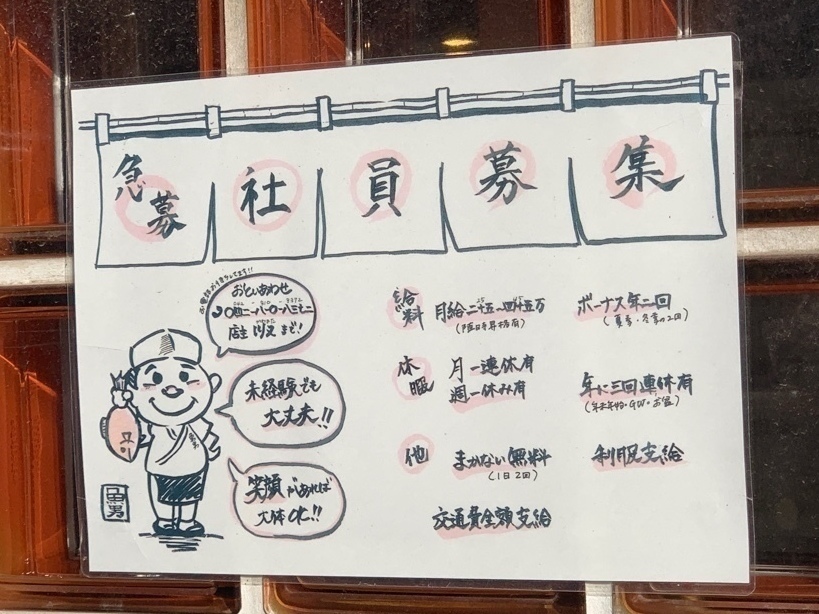 急募 社員募集
お電話お待ちしてます!!
おといあわせ
店主
まで!
未経験でも
大丈夫!!
笑顔があれば
大体OK!!
魚男
給料
月給二十五〜四十五万
ボーナス年二回
(夏季・冬季の2回)
休暇
月一連休有
週一休み有
年に三回連休有
(年末年始・GW・お盆)
他
まかない無料
(1日2回)
支給
交通費全額支給